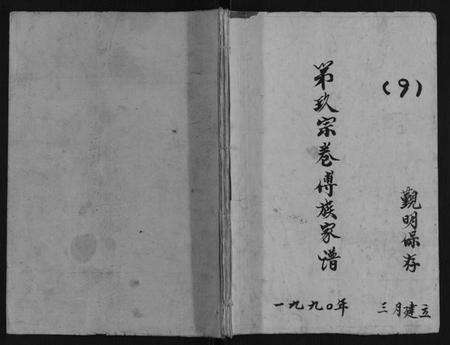 (9)
觀明保存
第玖宗卷傅族家谱
一九九〇年 三月建立